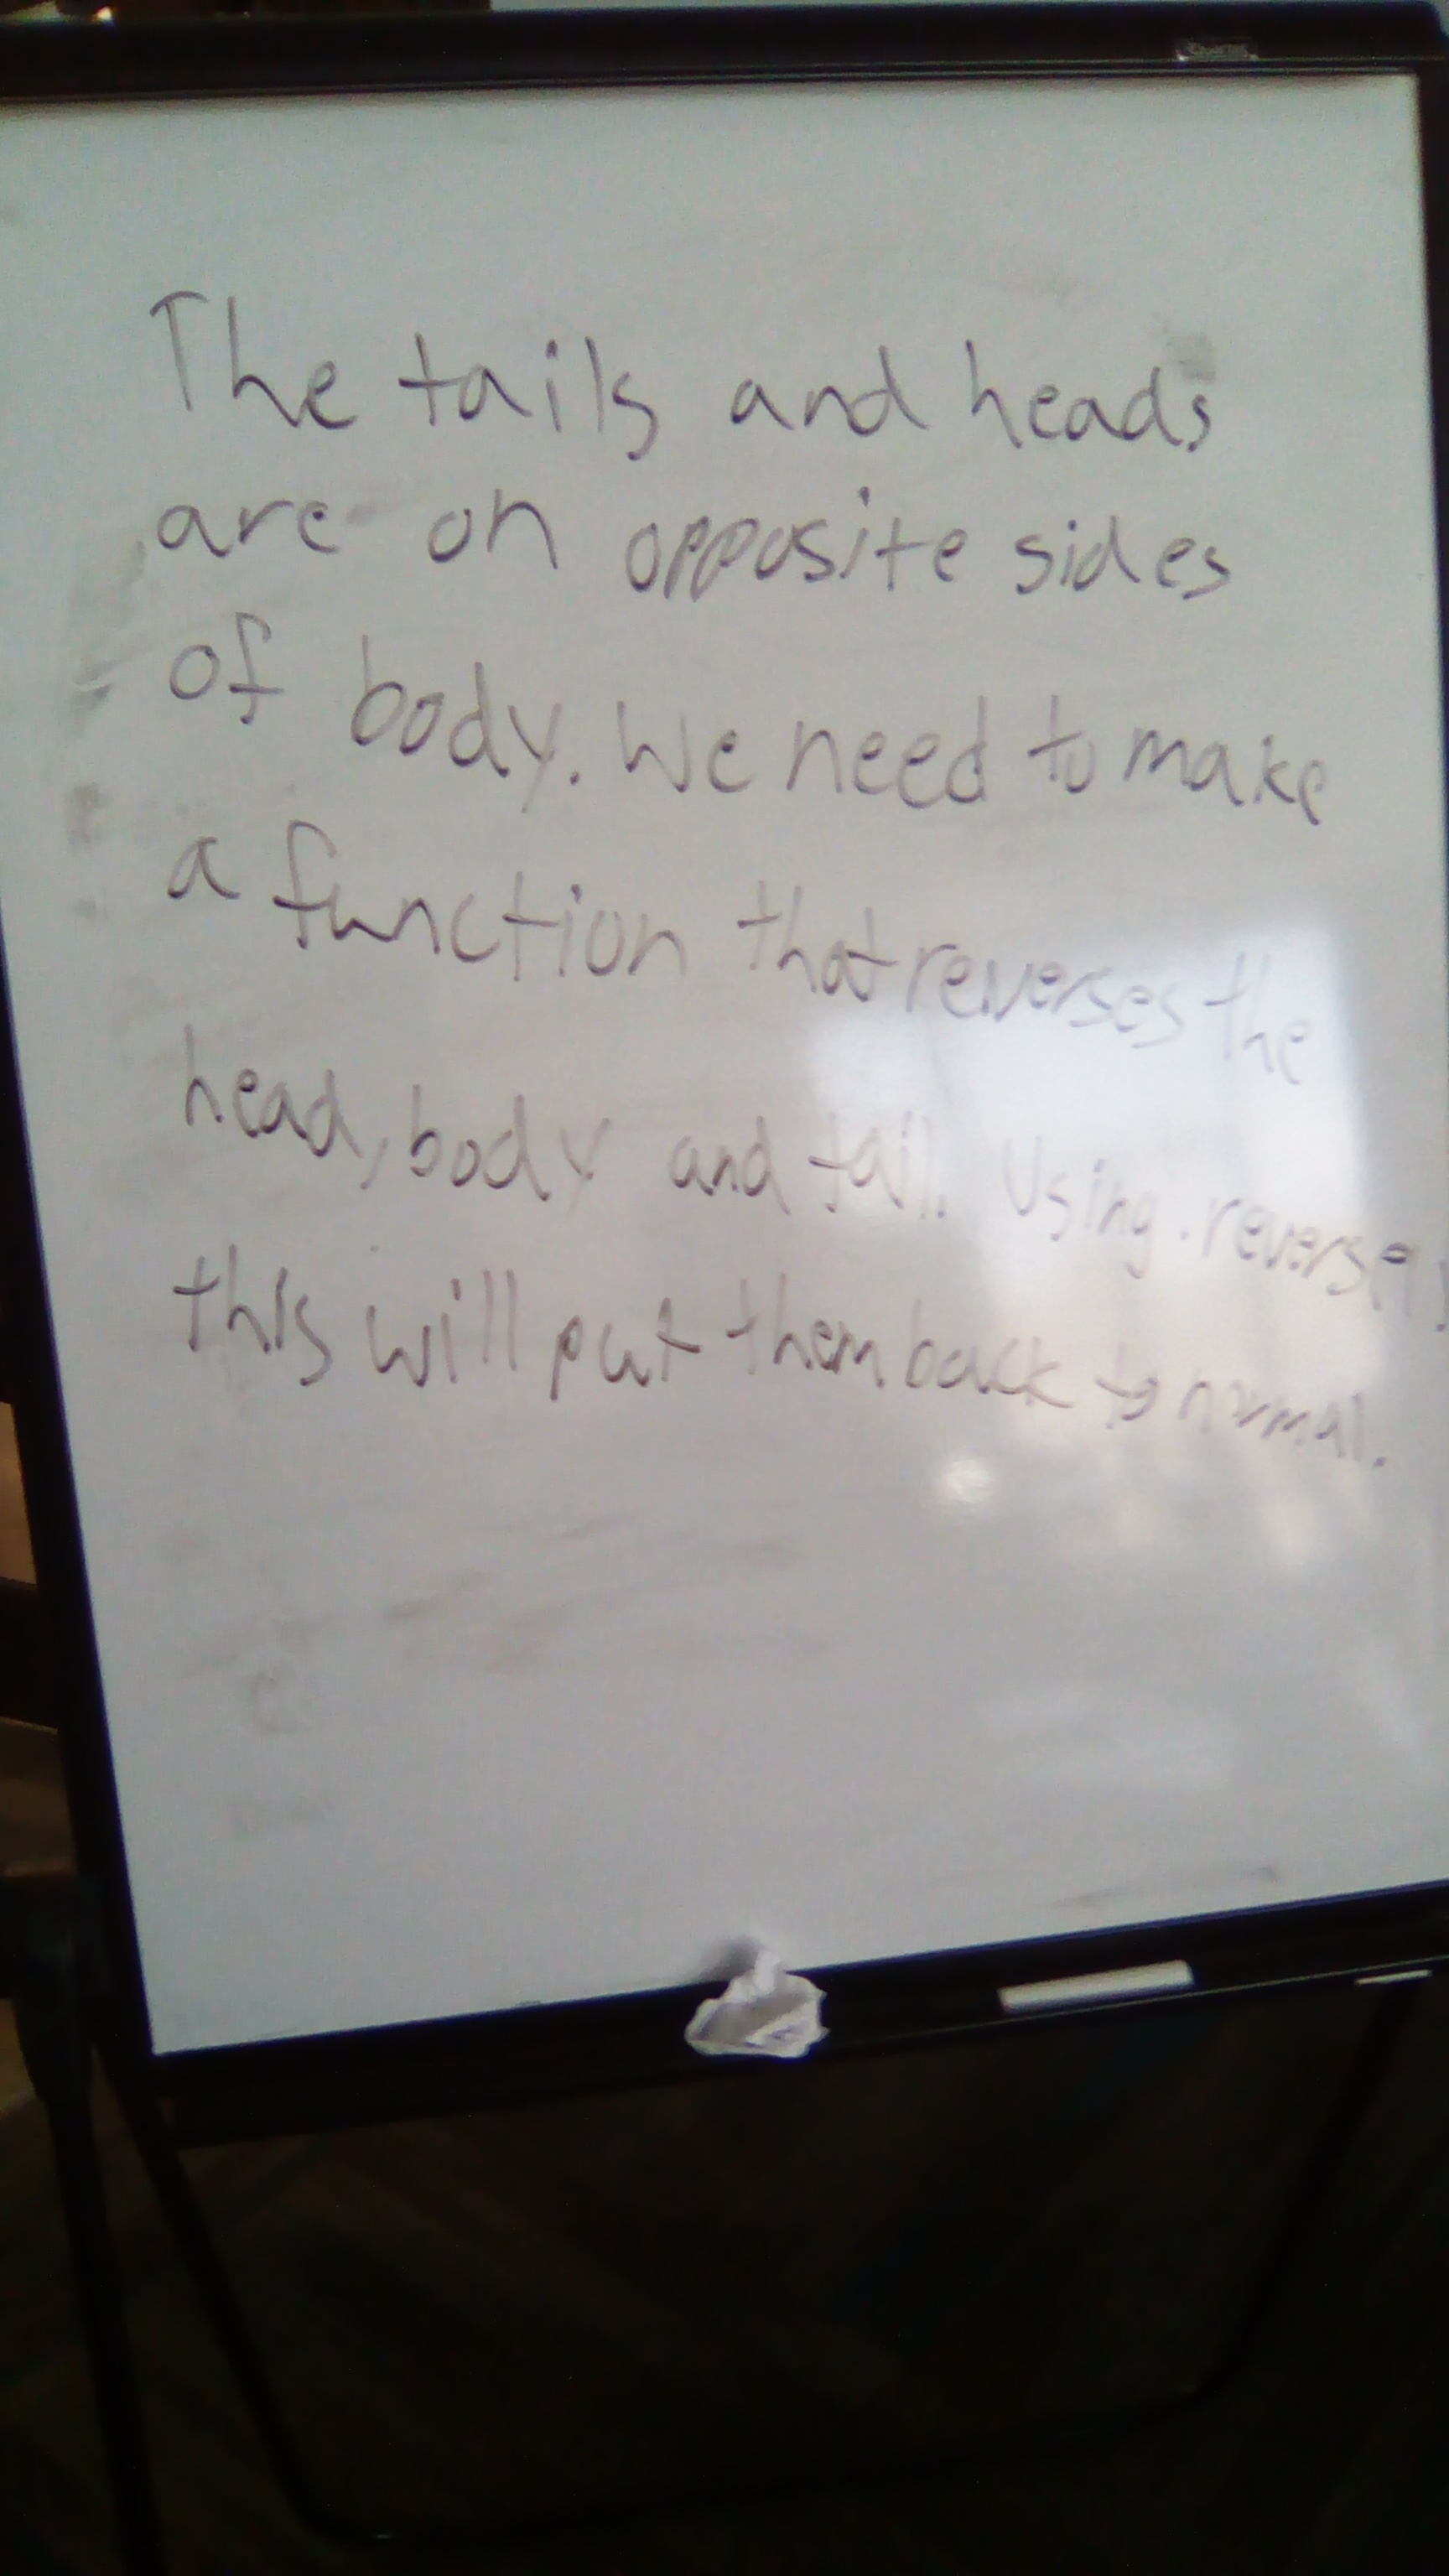 The tails and heads
are on opposite sides
of body. We need to make
a function that reverses the
head, body and tail. Using .reverse
this will put them back to normal.